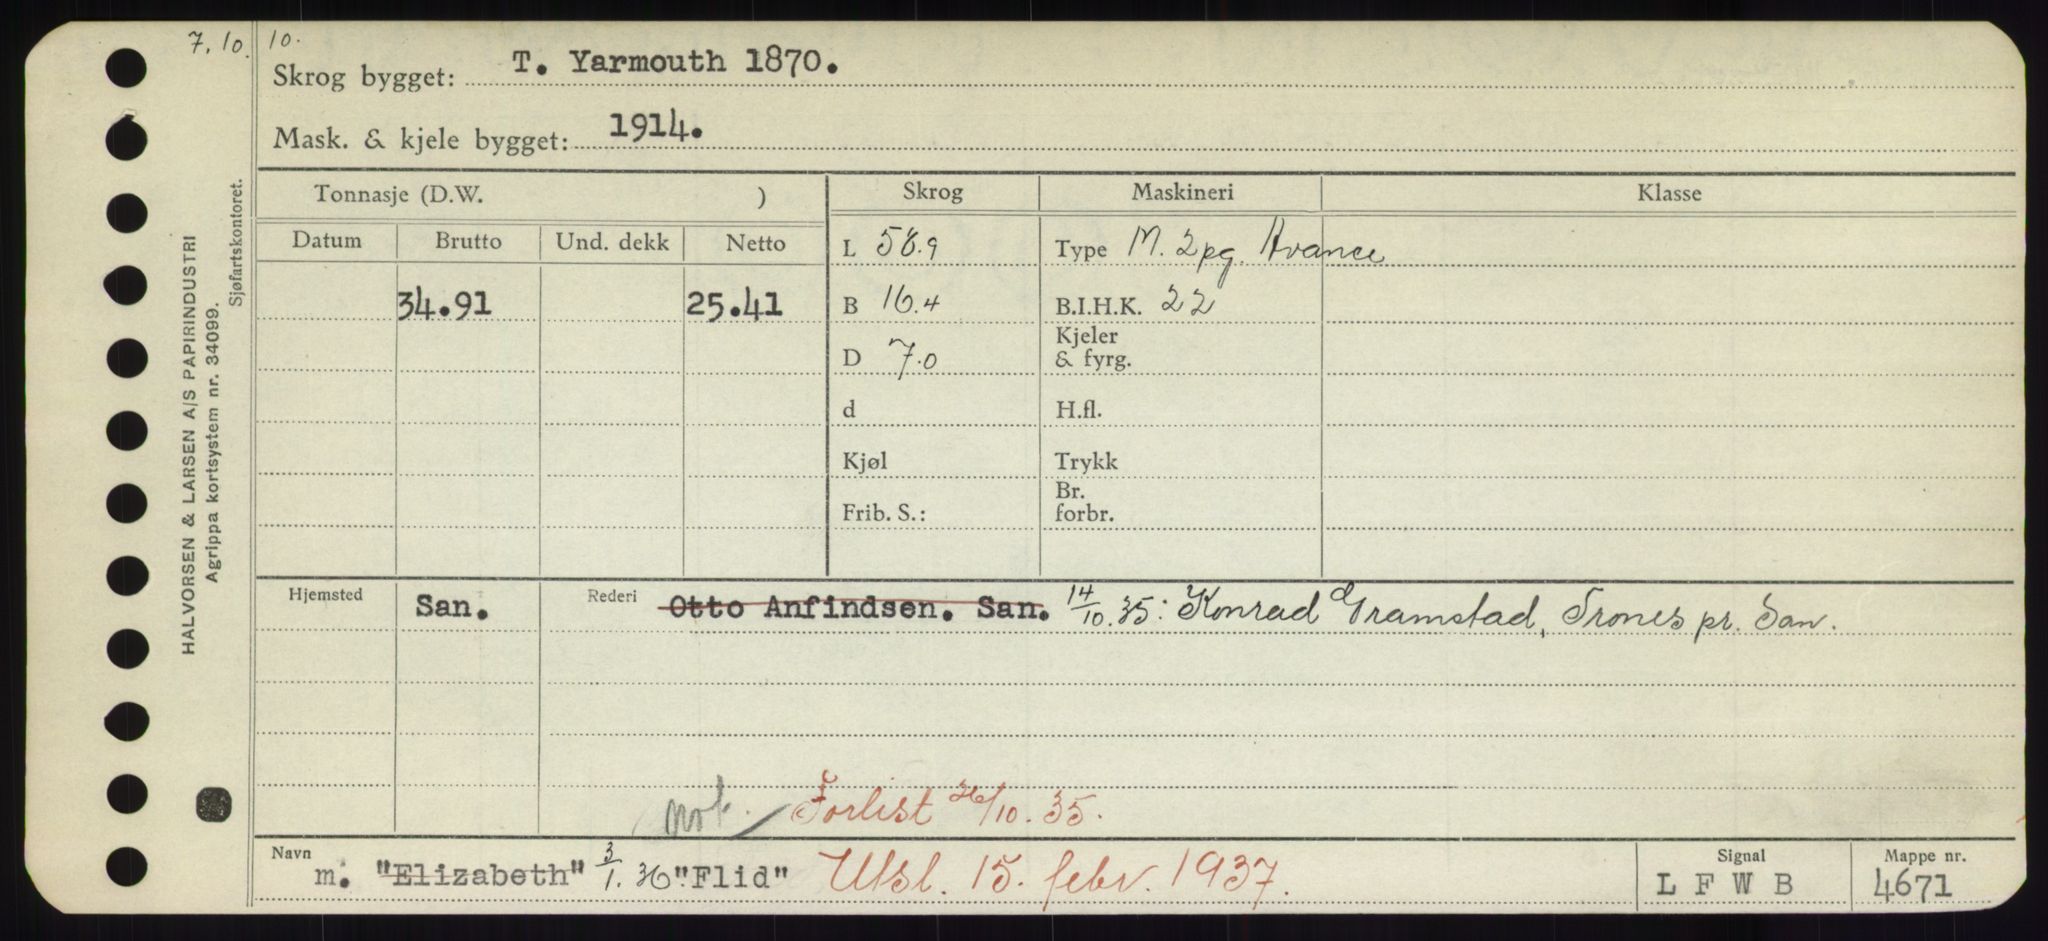 7. 10. 10.
Skrog bygget: T. Yarmouth 1870.
Mask. & kjele bygget: 1914.
HALVORSEN & LARSEN A/S PAPIRINDUSTRI
Agrippa kortsystem nr. 34099.
Sjøfartskontoret.
Tonnasje (D.W. ) Skrog Maskineri Klasse
Datum Brutto Und. dekk Netto
L 58.9 Type M. 2pg. Avance
34.91 25.41 B 16.4 B.I.H.K. 22
D 7.0 Kjeler & fyrg.
d H.fl.
Kjøl Trykk
Frib. S.: Br. forbr.
Hjemsted San. Rederi Otto Anfindsen. San. 14/10.35: Konrad Gramstad, Trones pr. San.
not. Forlist 26/10.35.
Navn m. "Elizabeth" 3/1.36 "Flid" Utsl. 15. febr. 1937.
Signal L F W B
Mappe nr. 4671